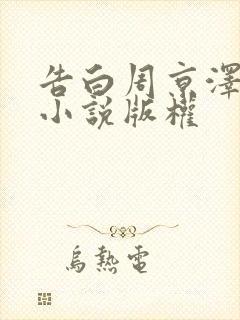 告白周京澤
小說版權
烏熱電